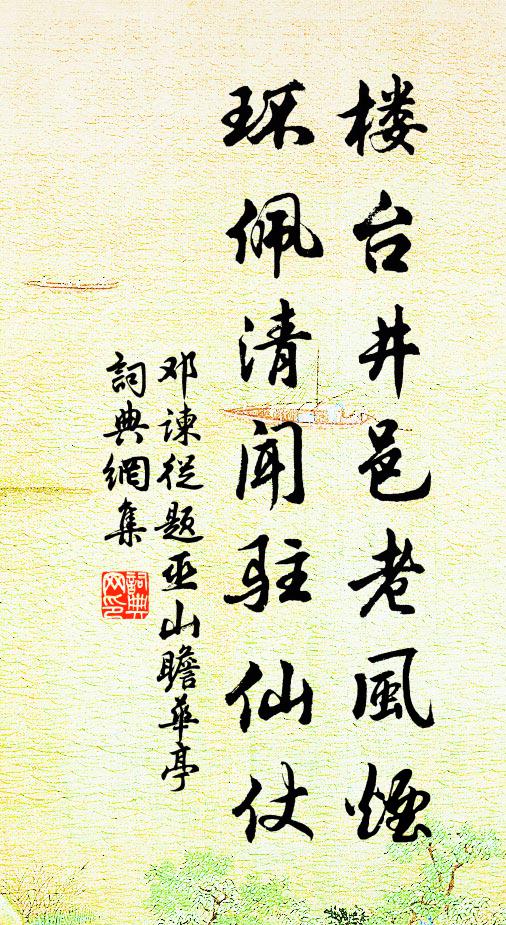 楼台井邑老風煙
环佩清闻驻仙仗
邓谏從题巫山瞻華亭
詞典網集
詞典网印